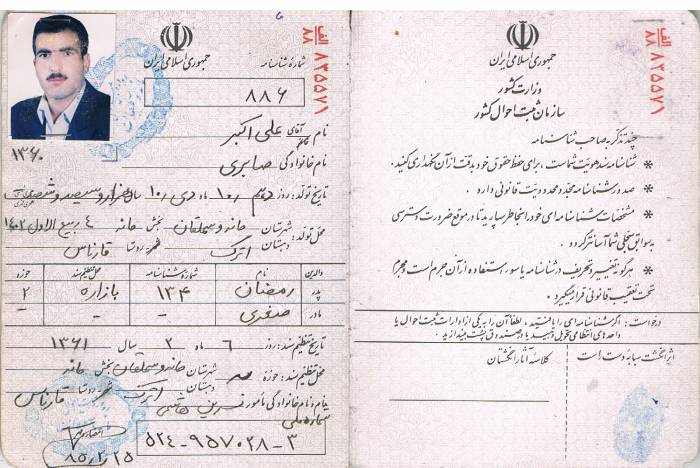 جمهوری اسلامی ایران
وزارت کشور
سازمان ثبت احوال کشور
الف ۸۸ ۸۳۵۵۷۱
چند تذکر به صاحب شناسنامه
* شناسنامه سند هویت شماست، برای حفظ حقوق خود به دقت از آن نگهداری کنید.
* صدور شناسنامه مجدد محدودیت قانونی دارد.
* مشخصات شناسنامه ای خود را بخاطر بسپارید تا در موقع ضرورت دسترسی
به سوابق سجلی شما آسانتر گردد.
* هرگونه تغییر و تحریف در شناسنامه یا سوء استفاده از آن جرم است و مجرم
تحت تعقیب قانونی قرار میگیرد.
درخواست: اگر شناسنامه ای را یافتید، لطفا آن را به یکی از ادارات ثبت احوال یا
واحدهای انتظامی تحویل دهید یا در صندوق پست بیندازید.
اثر انگشت سبابه دست است
کلاسه آثار انگشتان
جمهوری اسلامی ایران
شماره شناسنامه
الف ۸۸ ۸۳۵۵۷۱
۸۸۶
نام آقای علی اکبر
نام خانوادگی صابری
۱۳۶۰
تاریخ تولد: روز دهم ۱۰ ماه دی ۱۰ سال هزار و سیصد و شصت
۴ ربیع الاول ۱۴۰۲
محل تولد: شهرستان مانه و سملقان بخش مانه
دهستان اترک شهر روستا قارناس
والدین نام شماره شناسنامه محل تنظیم سند حوزه
پدر رمضان ۱۳۴ بازاره ۲
مادر صغری - - -
تاریخ تنظیم سند: روز ۶ ماه ۲ سال ۱۳۶۱
محل تنظیم سند: حوزه شهرستان مانه و سملقان بخش مانه
دهستان اترک شهر روستا قارناس
نام و نام خانوادگی مأمور نسرین هاشمی
شماره ملی
۵۲۴-۹۵۷۰۲۸-۳
۸۵/۲/۲۵